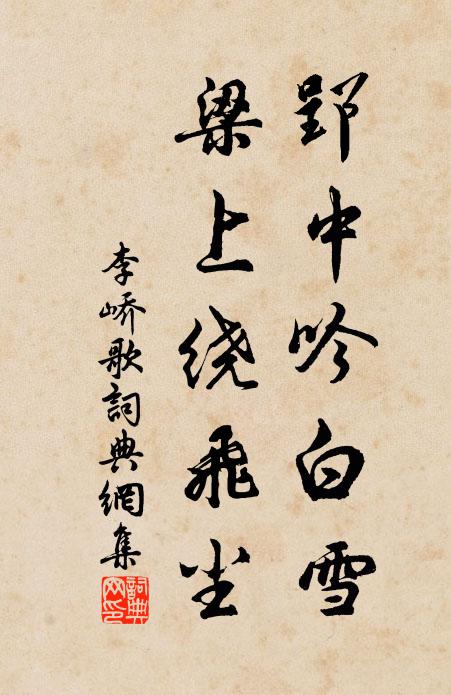 郢中吟白雪
梁上绕飛尘
李峤歌詞典網集
詞典网印